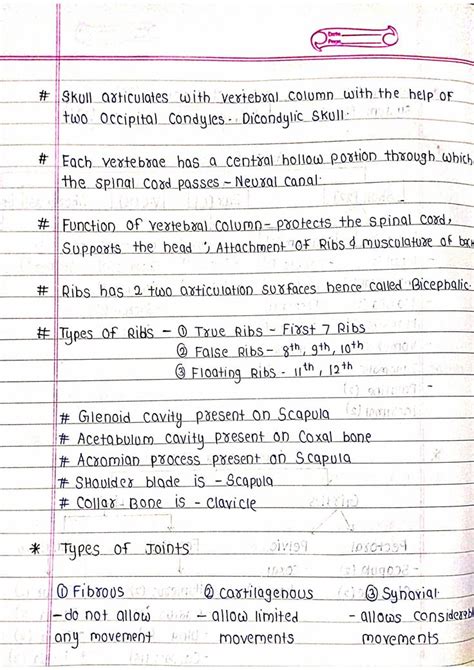 Date
Page
# Skull articulates with vertebral column with the help of
two Occipital Condyles. Dicondylic skull.
# Each vertebrae has a central hollow portion through which
the spinal cord passes - Neural canal.
# Function of vertebral column - protects the spinal cord,
supports the head, Attachment of Ribs & musculature of back
# Ribs has 2 two articulation surfaces hence called Bicephalic.
# Types of Ribs - ① True Ribs - First 7 Ribs
② False Ribs - 8th, 9th, 10th
③ Floating Ribs - 11th, 12th
# Glenoid cavity present on Scapula
# Acetabulum cavity present on Coxal bone
# Acromian process present on Scapula
# Shoulder blade is - Scapula
# Collar Bone is - Clavicle
* Types of Joints
① Fibrous ② cartilagenous ③ Synovial
- do not allow - allow limited - allows considerable
any movement movements movements